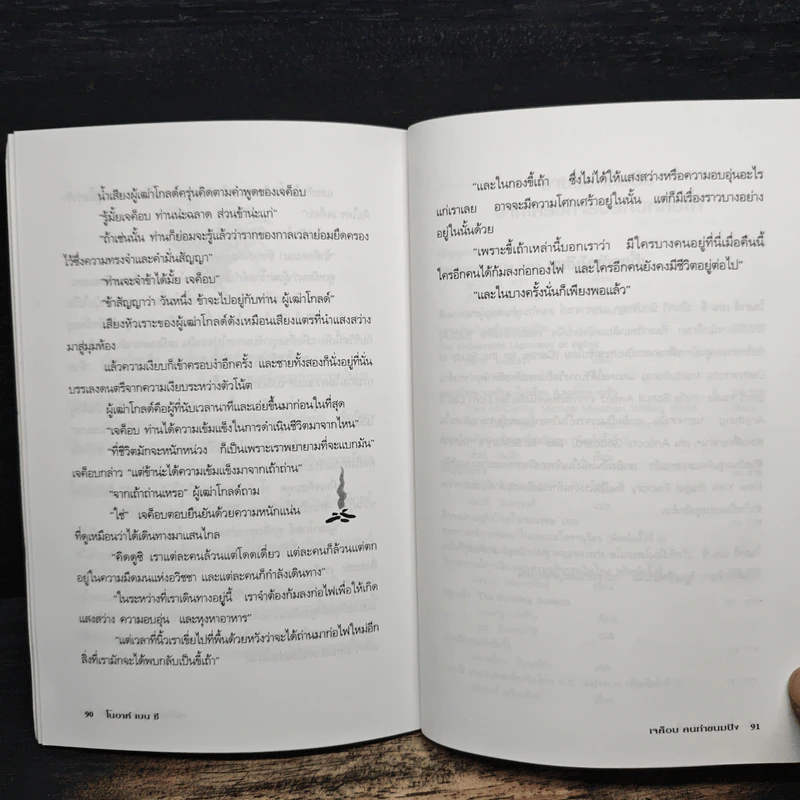 น้ำเสียงผู้เฒ่าโกลด์ครุ่นคิดตามคำพูดของเจค็อบ
“รู้มั้ยเจค็อบ ท่านน่ะฉลาด ส่วนข้าน่ะแก่”
“ถ้าเช่นนั้น ท่านก็ย่อมจะรู้แล้วว่ารากของกาลเวลาย่อมยึดครอง
ไว้ซึ่งความทรงจำและคำมั่นสัญญา”
“ท่านจะจำข้าได้มั้ย เจค็อบ”
“ข้าสัญญาว่า วันหนึ่ง ข้าจะไปอยู่กับท่าน ผู้เฒ่าโกลด์”
เสียงหัวเราะของผู้เฒ่าโกลด์ดังเหมือนเสียงแตรที่นำแสงสว่าง
มาสู่มุมห้อง
แล้วความเงียบก็เข้าครอบงำอีกครั้ง และชายทั้งสองก็นั่งอยู่ที่นั่น
บรรเลงดนตรีจากความเงียบระหว่างตัวโน้ต
ผู้เฒ่าโกลด์คือผู้ที่นับเวลานาทีและเอ่ยขึ้นมาก่อนในที่สุด
“เจค็อบ ท่านได้ความเข้มแข็งในการดำเนินชีวิตมาจากไหน”
“ที่ชีวิตมักจะหนักหน่วง ก็เป็นเพราะเราพยายามที่จะแบกมัน”
เจค็อบกล่าว “แต่ข้าน่ะได้ความเข้มแข็งมาจากเถ้าถ่าน”
“จากเถ้าถ่านเหรอ” ผู้เฒ่าโกลด์ถาม
“ใช่” เจค็อบตอบยืนยันด้วยความหนักแน่น
ที่ดูเหมือนว่าได้เดินทางมาแสนไกล
“คิดดูซิ เราแต่ละคนล้วนแต่โดดเดี่ยว แต่ละคนก็ล้วนแต่ตก
อยู่ในความมืดมนแห่งอวิชชา และแต่ละคนก็กำลังเดินทาง”
“ในระหว่างที่เราเดินทางอยู่นี้ เราจำต้องก้มลงก่อไฟเพื่อให้เกิด
แสงสว่าง ความอบอุ่น และหุงหาอาหาร”
“แต่เวลาที่นิ้วเราเขี่ยไปที่พื้นด้วยหวังว่าจะได้ถ่านมาก่อไฟใหม่อีก
สิ่งที่เรามักจะได้พบกลับเป็นขี้เถ้า”
90 โนอาห์ เบน ชี
“และในกองขี้เถ้า ซึ่งไม่ได้ให้แสงสว่างหรือความอบอุ่นอะไร
แก่เราเลย อาจจะมีความโศกเศร้าอยู่ในนั้น แต่ก็มีเรื่องราวบางอย่าง
อยู่ในนั้นด้วย
“เพราะขี้เถ้าเหล่านี้บอกเราว่า มีใครบางคนอยู่ที่นี่เมื่อคืนนี้
ใครอีกคนได้ก้มลงก่อกองไฟ และใครอีกคนยังคงมีชีวิตอยู่ต่อไป”
“และในบางครั้งนั่นก็เพียงพอแล้ว”
เจค็อบ คนทำขนมปัง 91